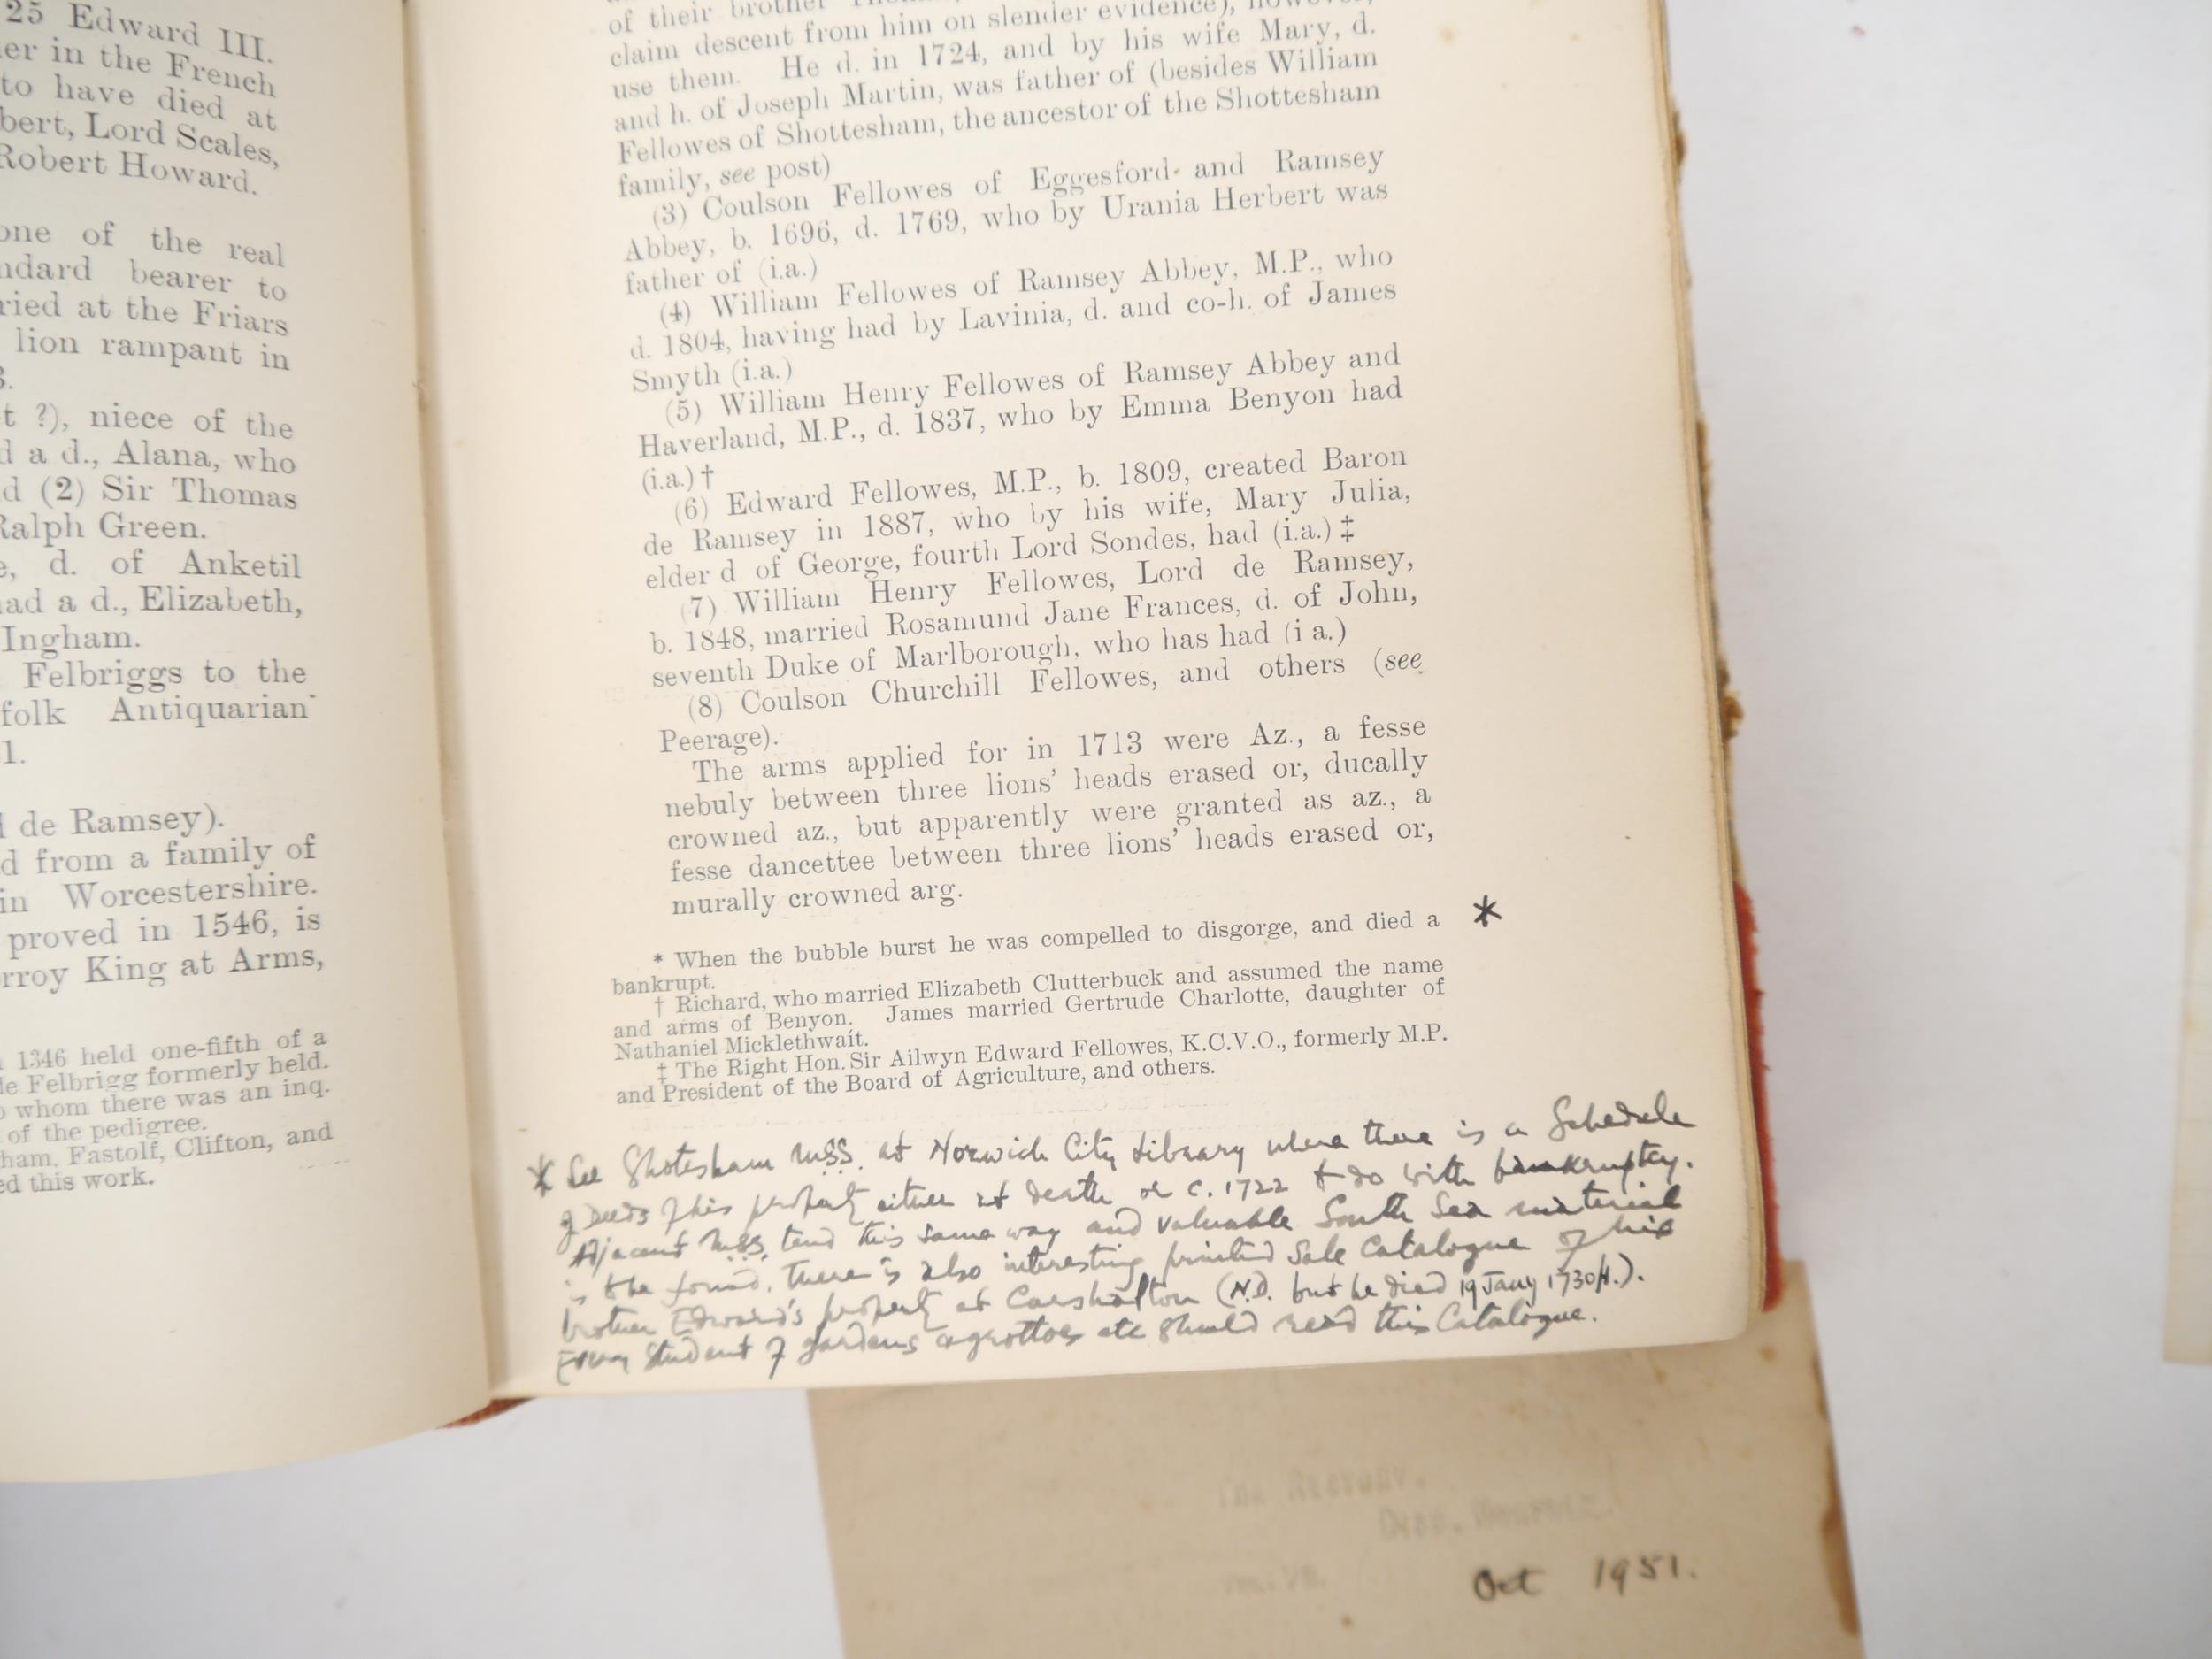 25 Edward III.
er in the French
to have died at
bert, Lord Scales,
Robert Howard.
one of the real
ndard bearer to
ried at the Friars
lion rampant in
3.
t ?), niece of the
d a d., Alana, who
d (2) Sir Thomas
Ralph Green.
e, d. of Anketil
had a d., Elizabeth,
Ingham.
Felbriggs to the
folk Antiquarian
1.
d de Ramsey).
d from a family of
in Worcestershire.
proved in 1546, is
rroy King at Arms,
1346 held one-fifth of a
de Felbrigg formerly held.
o whom there was an inq.
of the pedigree.
ham, Fastolf, Clifton, and
ed this work.
of their brother
claim descent from him on slender evidence), however,
use them. He d. in 1724, and by his wife Mary, d.
and h. of Joseph Martin, was father of (besides William
Fellowes of Shottesham, the ancestor of the Shottesham
family, see post)
(3) Coulson Fellowes of Eggesford and Ramsey
Abbey, b. 1696, d. 1769, who by Urania Herbert was
father of (i.a.)
(4) William Fellowes of Ramsey Abbey, M.P., who
d. 1804, having had by Lavinia, d. and co-h. of James
Smyth (i.a.)
(5) William Henry Fellowes of Ramsey Abbey and
Haverland, M.P., d. 1837, who by Emma Benyon had
(i.a.) †
(6) Edward Fellowes, M.P., b. 1809, created Baron
de Ramsey in 1887, who by his wife, Mary Julia,
elder d of George, fourth Lord Sondes, had (i.a.) ‡
(7) William Henry Fellowes, Lord de Ramsey,
b. 1848, married Rosamund Jane Frances, d. of John,
seventh Duke of Marlborough, who has had (i a.)
(8) Coulson Churchill Fellowes, and others (see
Peerage).
The arms applied for in 1713 were Az., a fesse
nebuly between three lions' heads erased or, ducally
crowned az., but apparently were granted as az., a
fesse dancettee between three lions' heads erased or,
murally crowned arg.
* When the bubble burst he was compelled to disgorge, and died a *
bankrupt.
† Richard, who married Elizabeth Clutterbuck and assumed the name
and arms of Benyon. James married Gertrude Charlotte, daughter of
Nathaniel Micklethwait.
‡ The Right Hon. Sir Ailwyn Edward Fellowes, K.C.V.O., formerly M.P.
and President of the Board of Agriculture, and others.
* See Shotesham MSS. at Norwich City Library where there is a Schedule
of Deeds of his property either at death or c. 1722 to do with bankruptcy.
Adjacent MSS. tend this same way and valuable South Sea material
is to be found. There is also interesting printed Sale Catalogue of his
brother Edward's property at Carshalton (N.D. but he died 19 Jany 1730/1.).
Every student of gardens grottoes etc should read this Catalogue.
The Rectory.
Oct 1951.